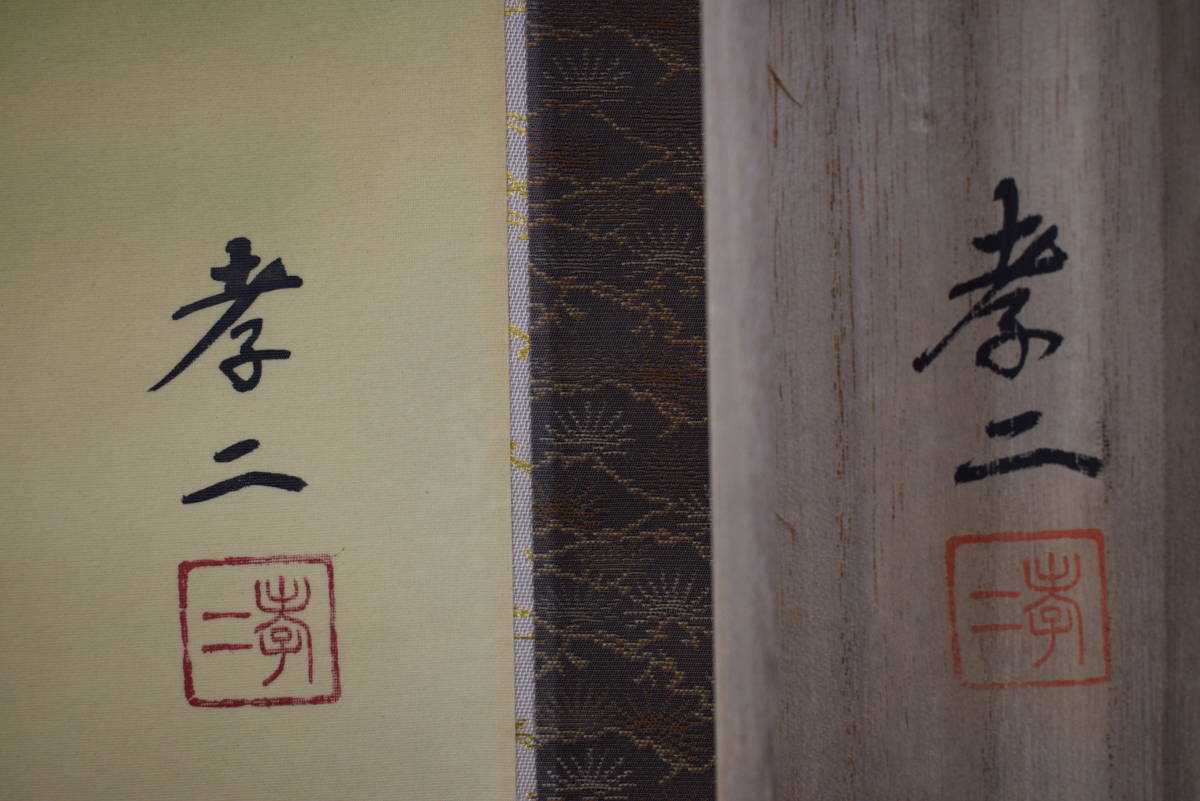 孝二
孝二
孝二
孝二